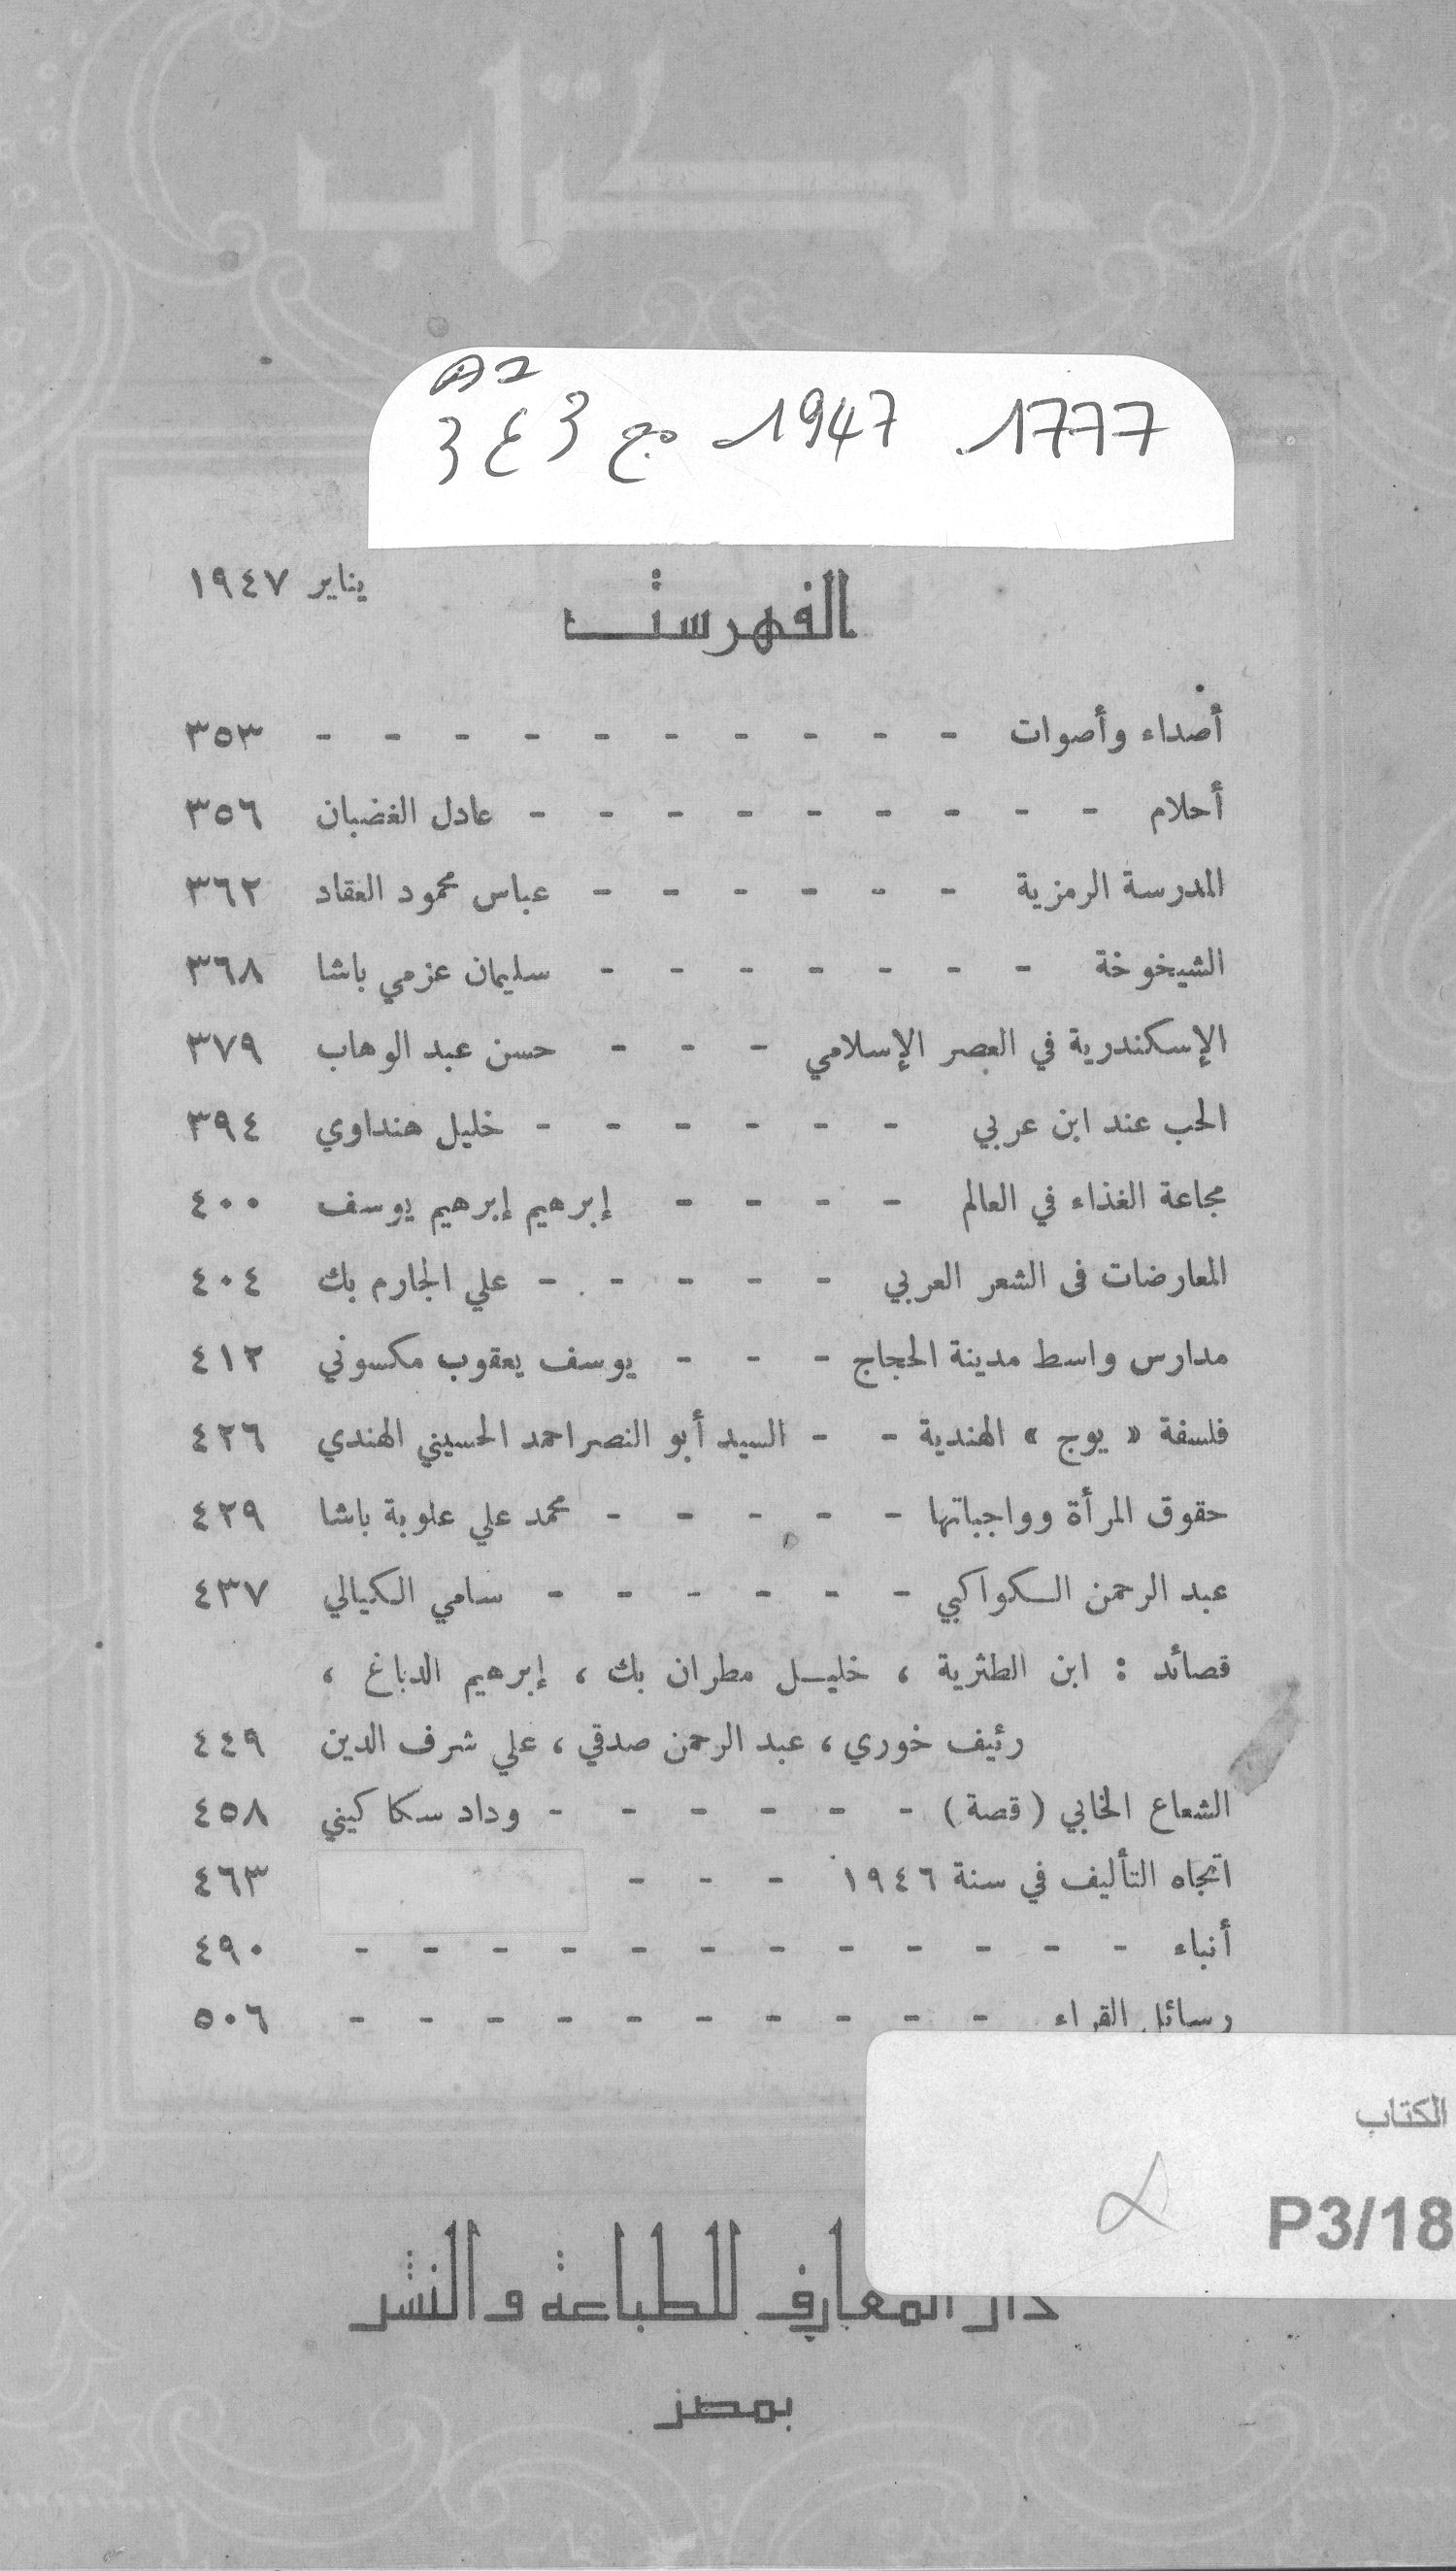 الكتاب
1777 1947 مج 3 ع 3
يناير ١٩٤٧
الفهرست
أصداء وأصوات - - - - - - - - - - ٣٥٣
أحلام - - - - - - - - - عادل الغضبان ٣٥٦
المدرسة الرمزية - - - - - - عباس محمود العقاد ٣٦٢
الشيخوخة - - - - - - - سليمان عزمي باشا ٣٦٨
الإسكندرية في العصر الإسلامي - - - حسن عبد الوهاب ٣٧٩
الحب عند ابن عربي - - - - - - خليل هنداوي ٣٩٤
مجاعة الغذاء في العالم - - - - إبرهيم إبرهيم يوسف ٤٠٠
المعارضات فى الشعر العربي - - - - - علي الجارم بك ٤٠٤
مدارس واسط مدينة الحجاج - - - يوسف يعقوب مكسوني ٤١٢
فلسفة « يوج » الهندية - - السيد أبو النصر احمد الحسيني الهندي ٤٢٦
حقوق المرأة وواجباتها - - - - - محمد علي علوبة باشا ٤٢٩
عبد الرحمن الكواكبي - - - - - - سامي الكيالي ٤٣٧
قصائد : ابن الطثرية ، خليل مطران بك ، إبرهيم الدباغ ،
رئيف خوري ، عبد الرحمن صدقي ، علي شرف الدين ٤٤٩
الشعاع الخابي ( قصة ) - - - - - - وداد سكاكيني ٤٥٨
اتجاه التأليف في سنة ١٩٤٦ - - - ٤٦٣
أنباء - - - - - - - - - - - - ٤٩٠
رسائل القراء - - - - - - - - - - ٥٠٦
الكتاب
P3/18
دار المعارف للطباعة والنشر
بمصر